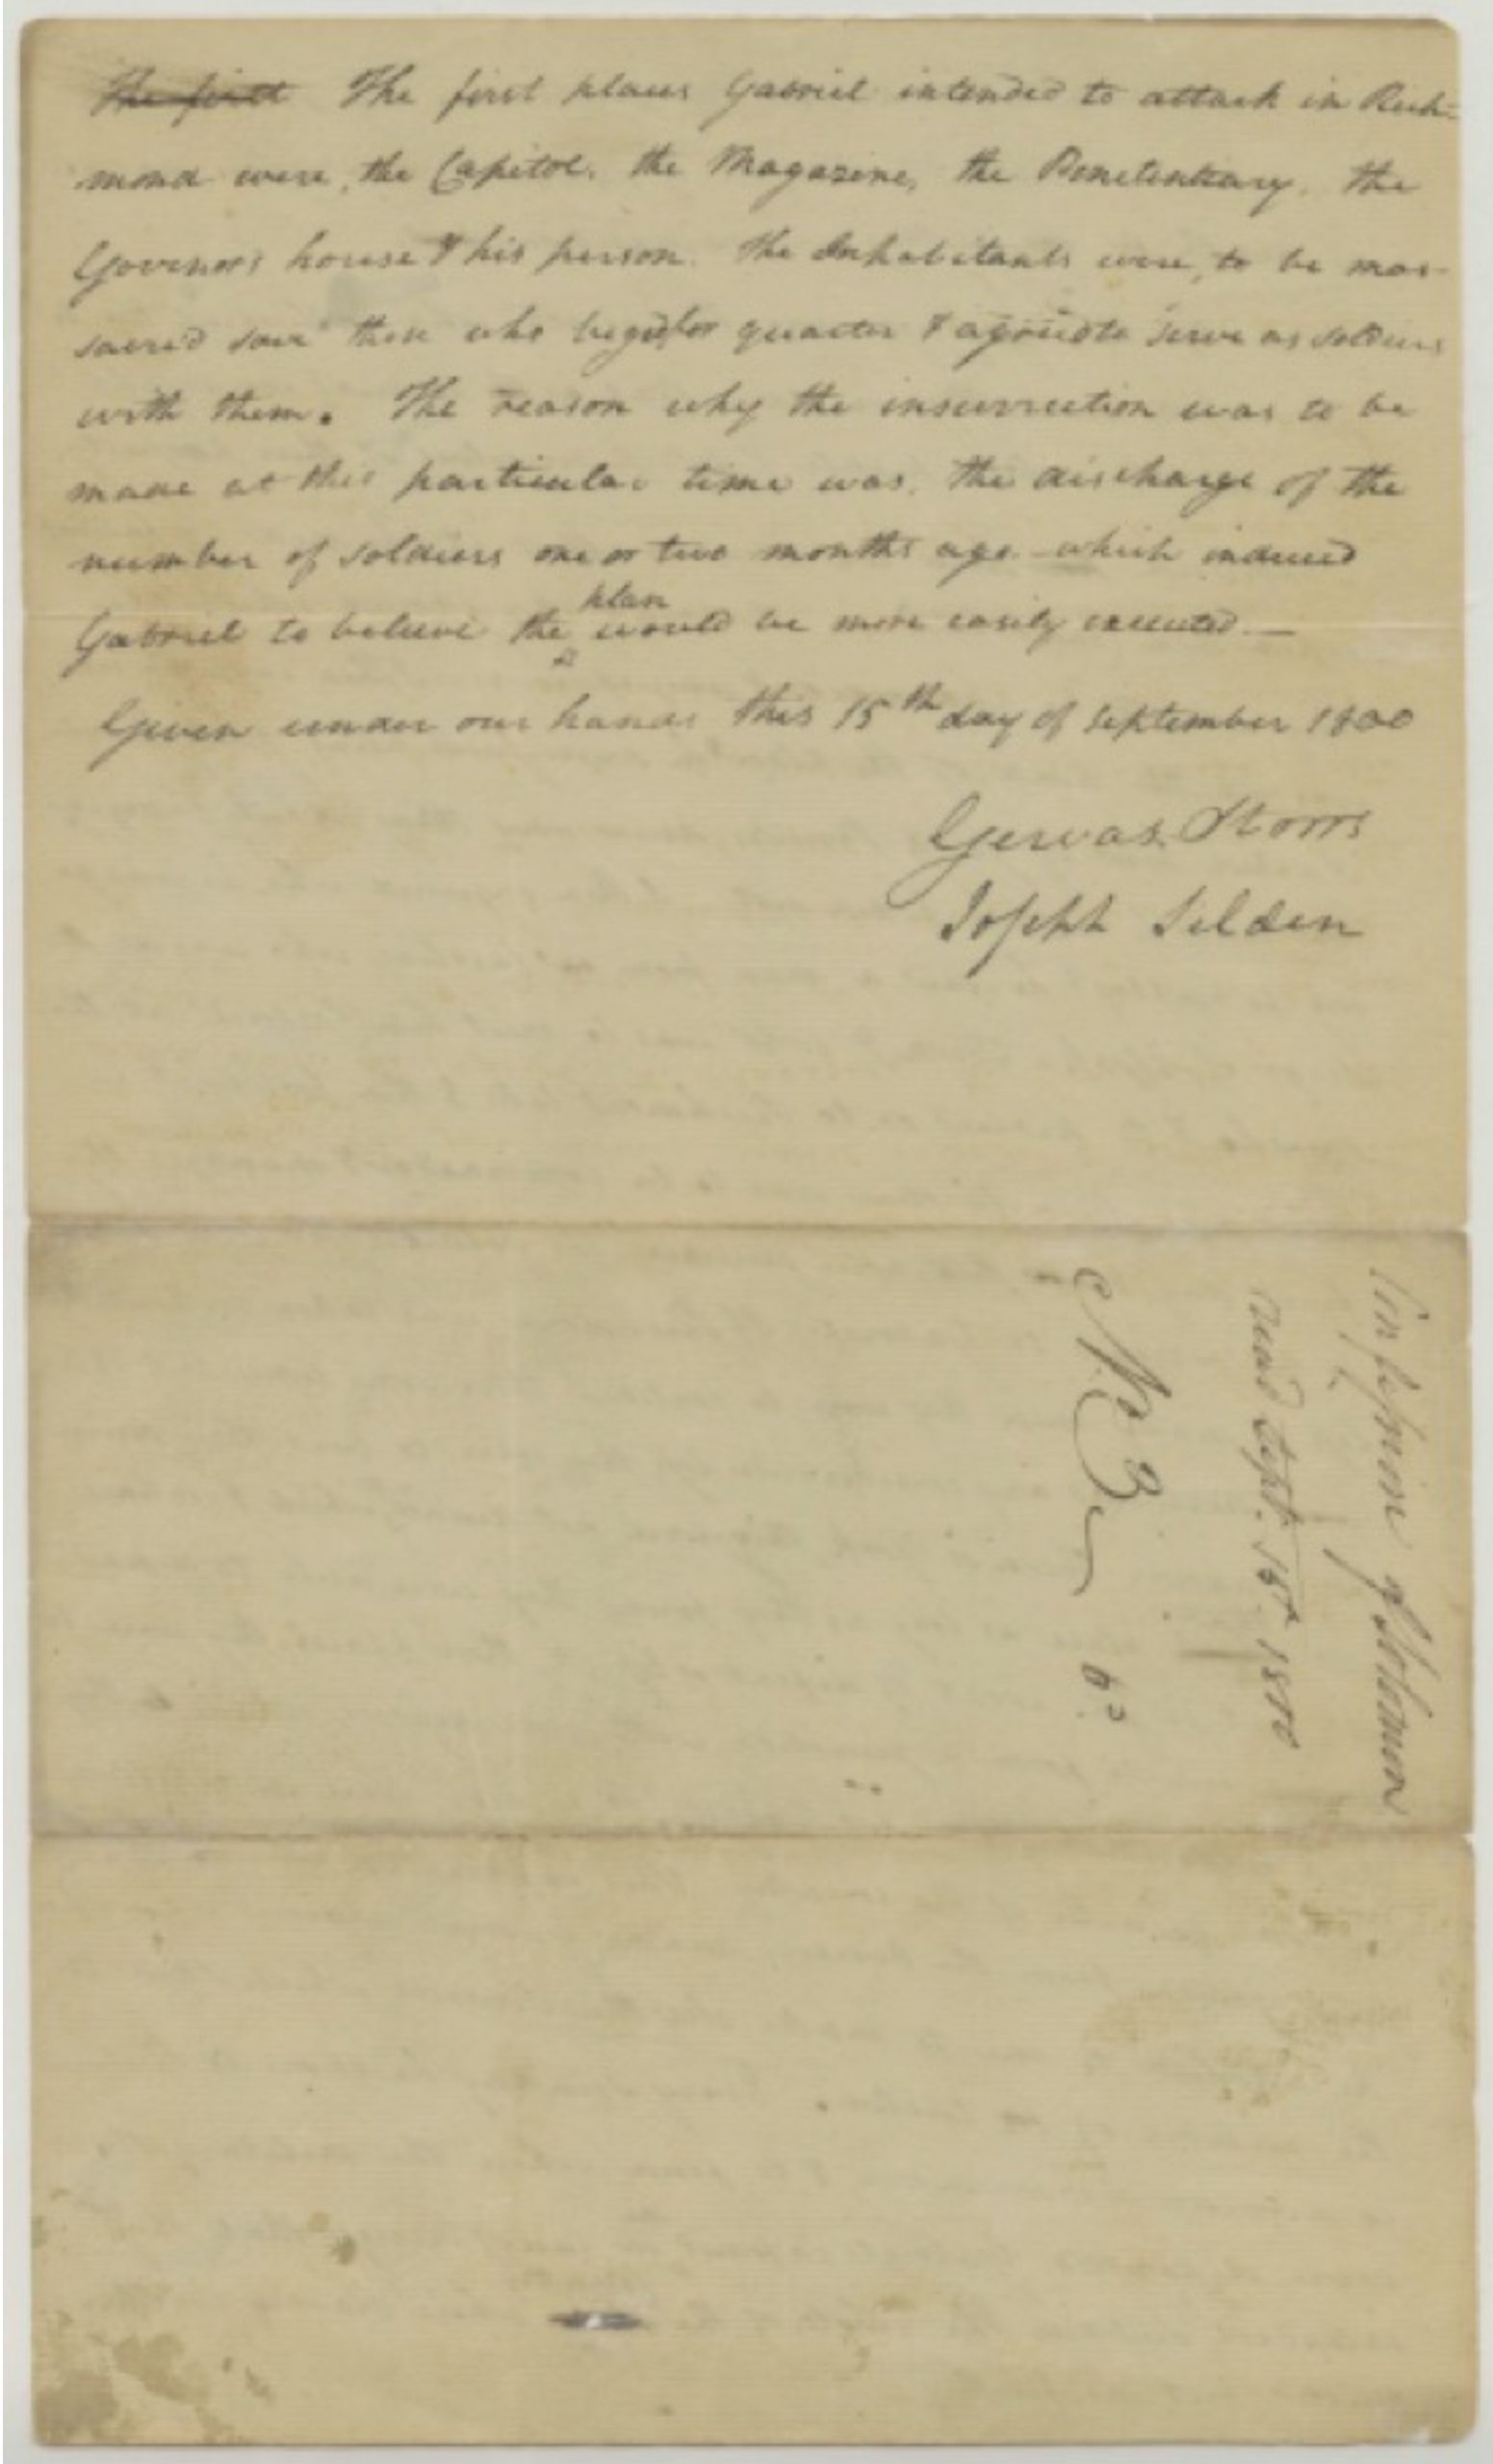 The first The first places Gabriel intended to attack in Rich-
mond were, the Capitol, the Magazine, the Penetentiary, the
Governors house & his person. The Inhabitants were, to be mas-
sacred save those who begged for quarter & agreed to serve as soldiers
with them. The reason why the insurrection was to be
made at this particular time was, the discharge of the
number of soldiers one or two months ago which induced
Gabriel to believe the plan would be more easily executed. —
Given under our hands this 15th day of September 1800
Gervas Storrs
Joseph Selden
Confession of Solomon
recd Sept. 15t 1800
No 3